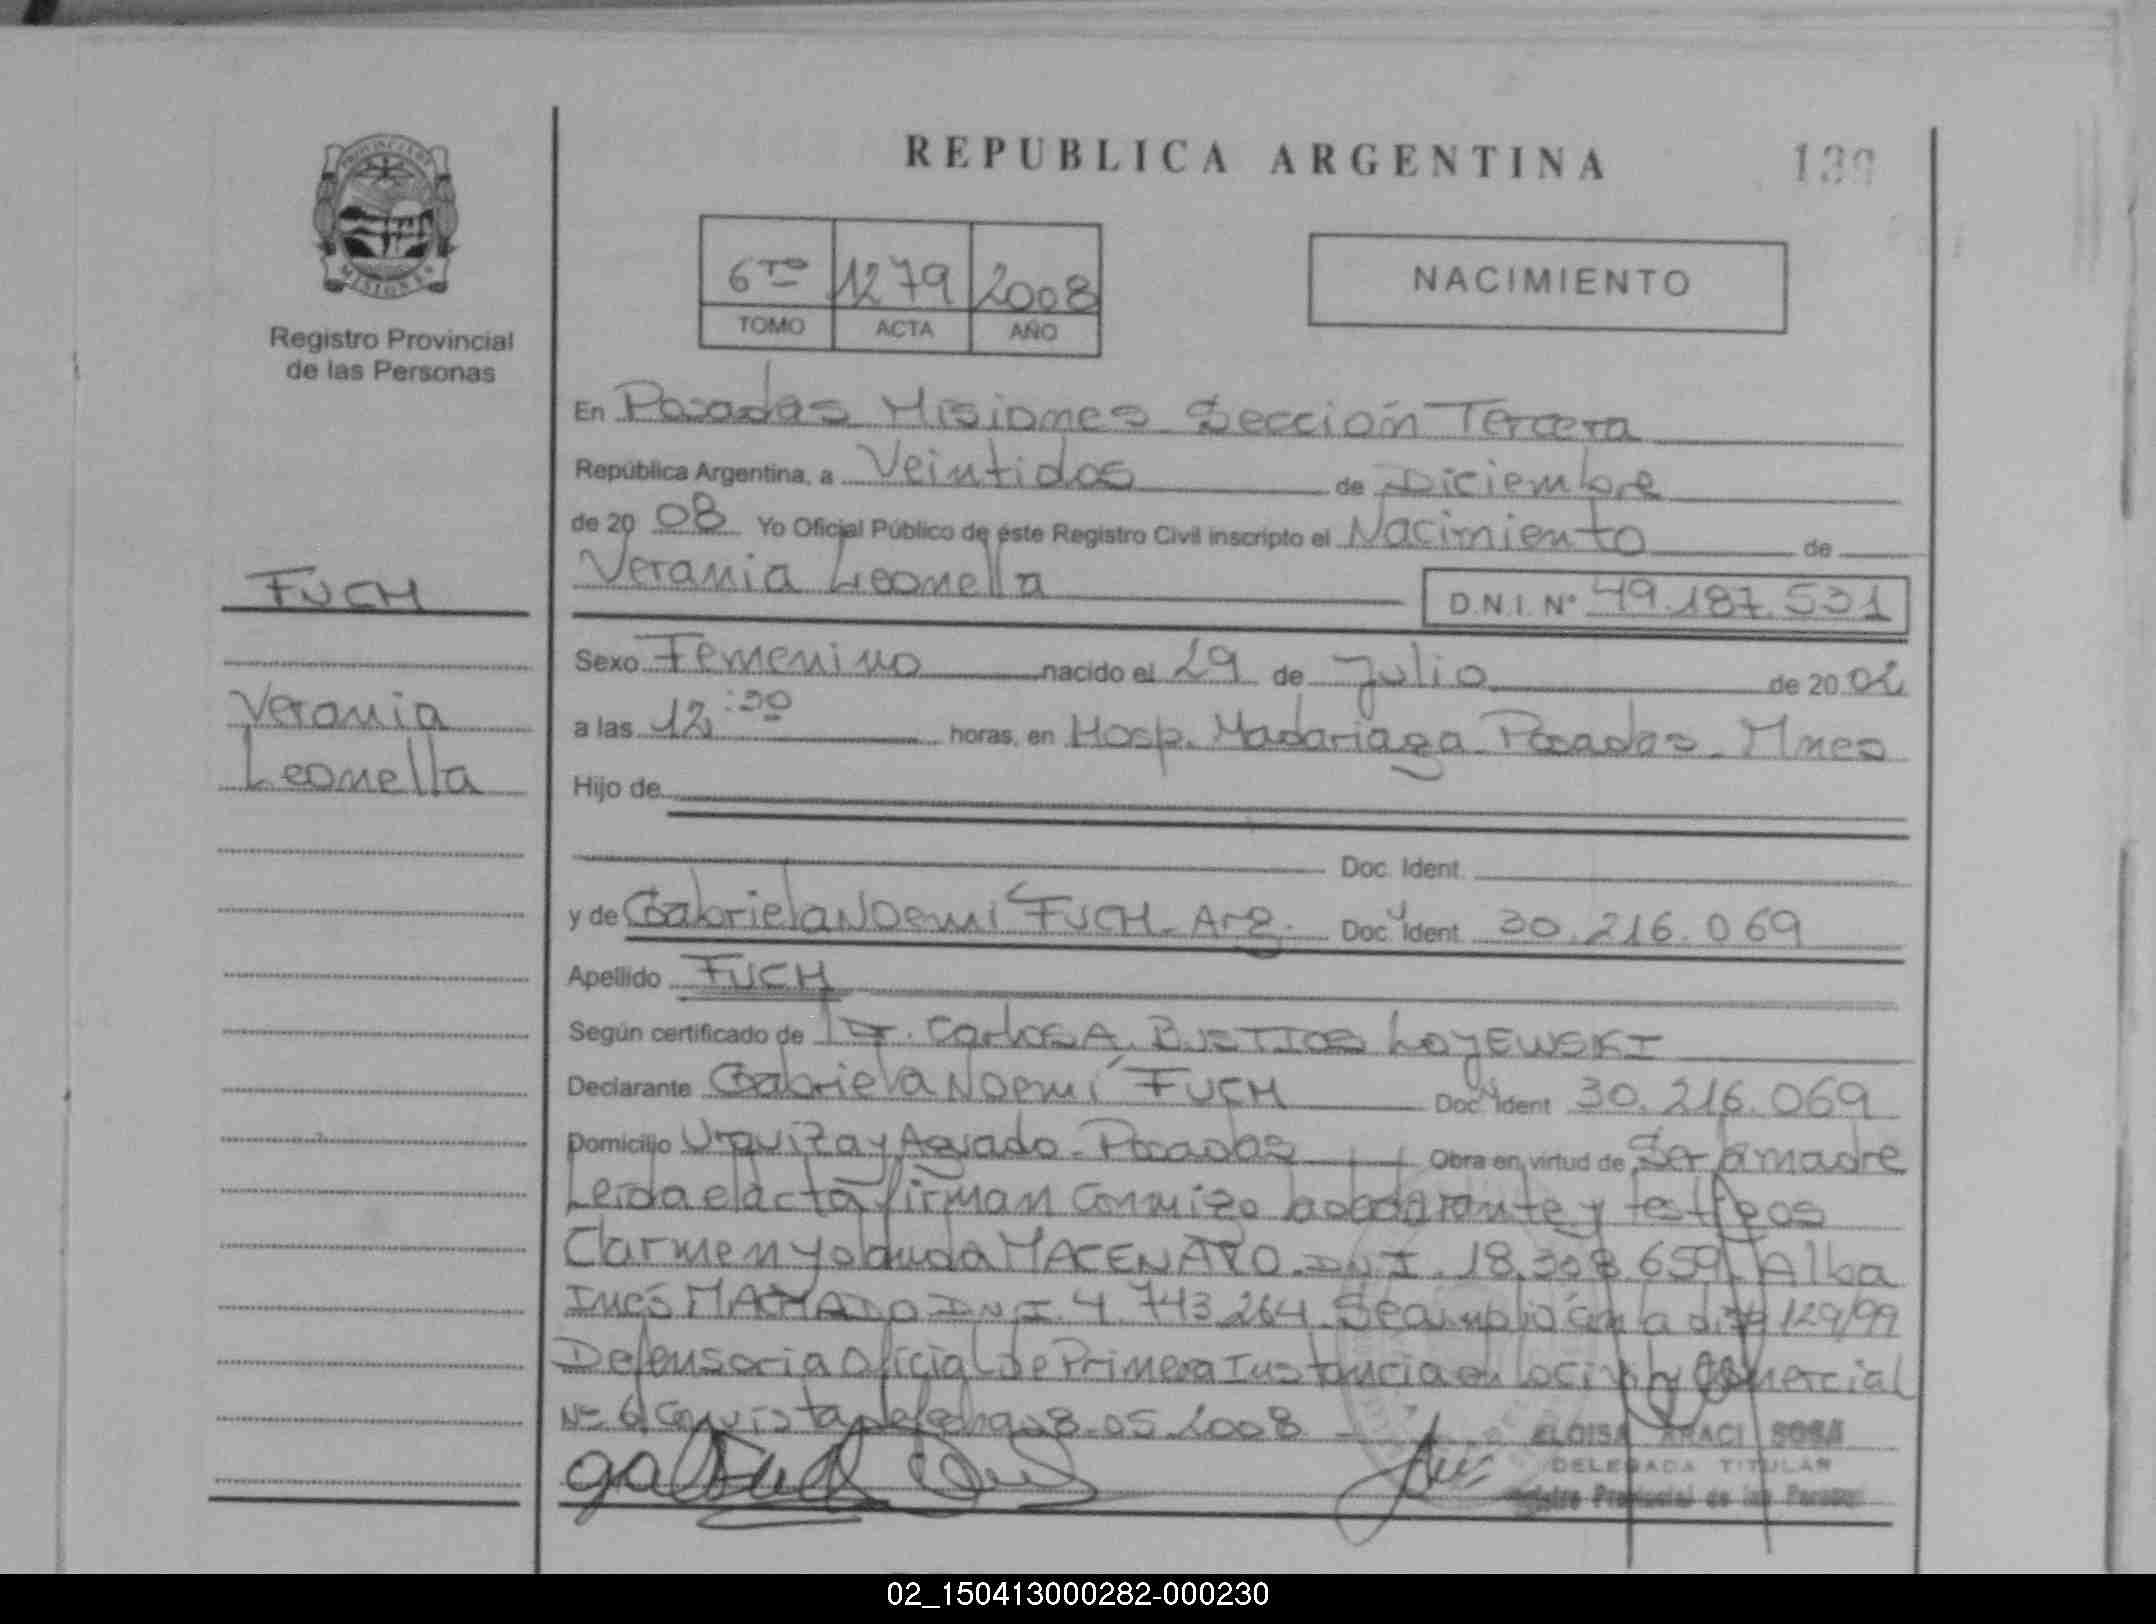 REPUBLICA ARGENTINA
139
PROVINCIA DE
MISIONES
Registro Provincial
de las Personas
6TO 1279 2008
TOMO ACTA AÑO
NACIMIENTO
En Posadas Misiones Sección Tercera
República Argentina, a Veintidos de Diciembre
de 2008 Yo Oficial Público de éste Registro Civil inscripto el Nacimiento de
Verania Leonella
D.N.I. Nº 49.187.531
FUCH
Verania
Leonella
Sexo Femenino nacido el 29 de Julio de 2002
a las 12:30 horas, en Hosp. Madariaga Posadas - Mnes
Hijo de
Doc. Ident.
y de Gabriela Noemí FUCH - Arg. Doc. Ident. 30.216.069
Apellido FUCH
Según certificado de Dr. Carlos A. BUSTIOS LOJEWSKI
Declarante Gabriela Noemí FUCH Doc. Ident 30.216.069
Domicilio Urquiza y Aguado - Posadas Obra en virtud de Ser la madre
Leida el acta firman conmigo la declarante y testigos
Carmen Yolanda MACENARO DNI. 18.308.659 Alba
Inés MACHADO DNI. 4.743.264 Se amplió con la 129/99
Defensoria Oficial de Primera Instancia en lo Civil y Comercial
Nº 6 Con vista de fecha 08.05.2008
ELOISA ARACI SOSA
DELEGADA TITULAR
Registro Provincial de las Personas
02_150413000282-000230